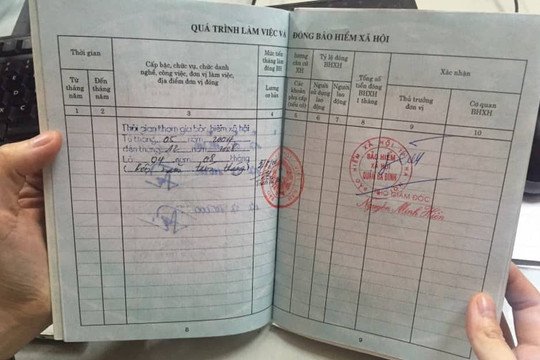 QUÁ TRÌNH LÀM VIỆC VÀ ĐÓNG BẢO HIỂM XÃ HỘI
Thời gian
Từ tháng năm
Đến tháng năm
Cấp bậc, chức vụ, chức danh nghề, công việc, đơn vị làm việc, địa điểm đơn vị đóng
Mức tiền tháng làm đóng BH
Lương cơ bản
lương
XH
Các khoản
Tỷ lệ đóng BHXH
Người sử dụng lao động
Người lao động
Tổng số tiền đóng BHXH 1 tháng
Xác nhận
Thủ trưởng đơn vị
Cơ quan BHXH
1 2 3 4 5 6 7 8 9 10
Thời gian tham gia bảo hiểm xã hội
Từ tháng 05 năm 2004
đến tháng 12 năm
Là 04 năm 08 tháng
BẢO HIỂM
XÃ HỘI
GIÁM ĐỐC
Nguyễn Minh
8
9